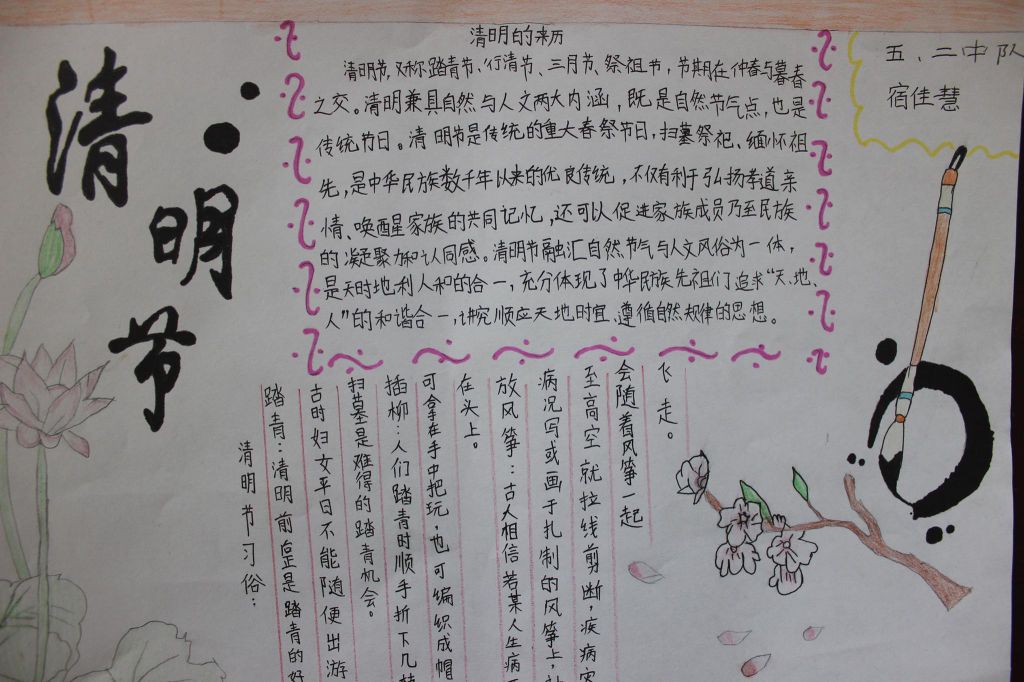 清明节
清明的来历
清明节,又称踏青节、行清节、三月节、祭祖节，节期在仲春与暮春
之交。清明兼具自然与人文两大内涵，既是自然节气点，也是
传统节日。清明节是传统的重大春祭节日，扫墓祭祀、缅怀祖
先，是中华民族数千年以来的优良传统，不仅有利于弘扬孝道亲
情、唤醒家族的共同记忆，还可以促进家族成员乃至民族
的凝聚力和认同感。清明节融汇自然节气与人文风俗为一体，
是天时地利人和的合一，充分体现了中华民族先祖们追求“天、地、
人”的和谐合一,讲究顺应天地时宜、遵循自然规律的思想。
五、二中队
宿佳慧
清明节习俗：
踏青：清明前是踏青的好
古时妇女平日不能随便出游
扫墓是难得的踏青机会。
插柳：人们踏青时顺手折下几
可拿在手中把玩，也可编织成帽
在头上。
放风筝：古人相信若某人生病
病况写或画于扎制的风筝上，
至高空就拉线剪断，疾病灾
会随着风筝一起
飞走。